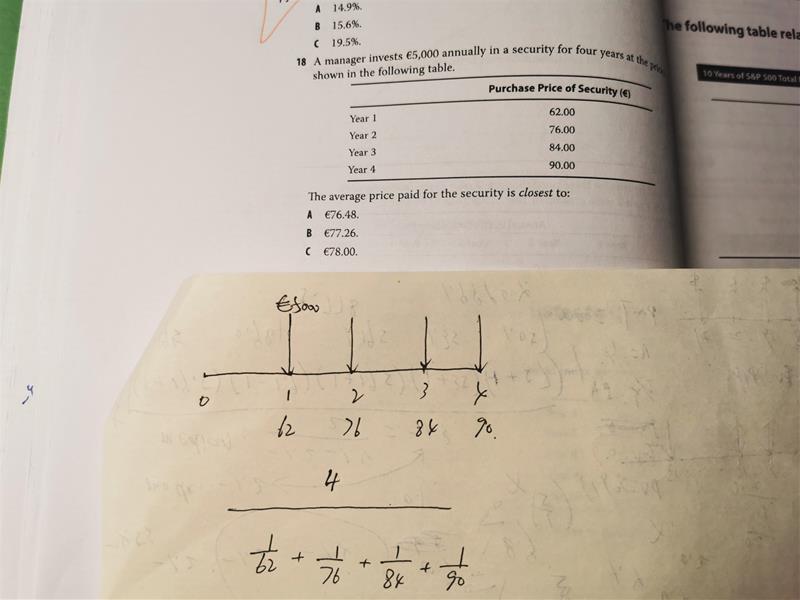 A 14.9%.
B 15.6%.
C 19.5%.
18 A manager invests €5,000 annually in a security for four years at the
shown in the following table.
Purchase Price of Security (€)
Year 1 62.00
Year 2 76.00
Year 3 84.00
Year 4 90.00
The average price paid for the security is closest to:
A €76.48.
B €77.26.
C €78.00.
The following table
10 Years of S&P 500 Total
€5000
0 1 2 3 4
62 76 84 90.
4
1/62 + 1/76 + 1/84 + 1/90